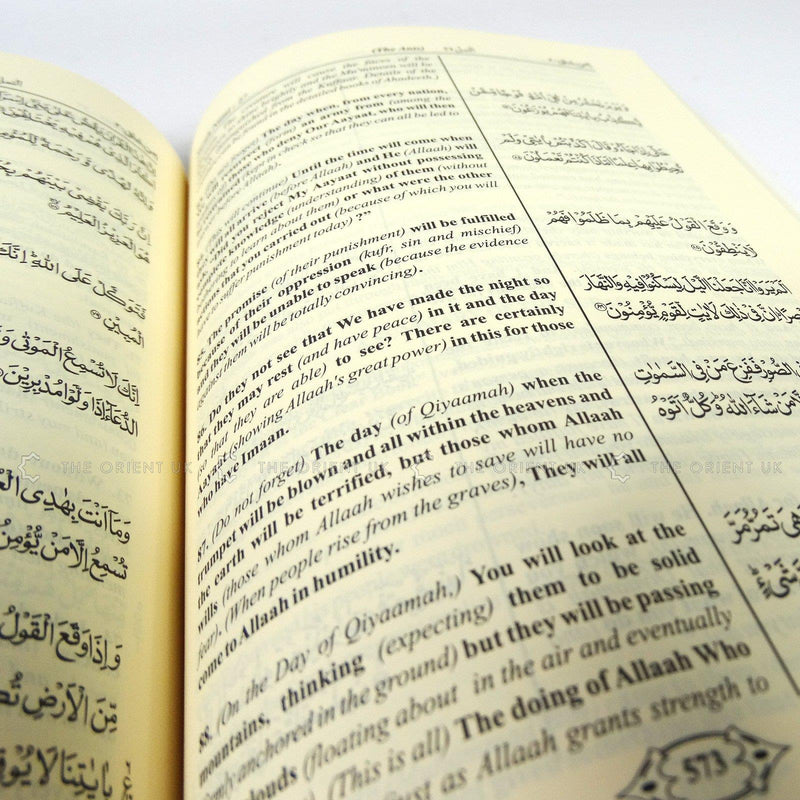 (The Ant)
النمل ٢٧
will cause the faces of the
brightly and the Mu'mineen will be
the Kuffaar. Details of the
from the detailed books of Ahadeeth.)
The day when, from every nation,
(form) an army from (among the
those who deny Our Aayaat, who will then
(kept in check so that they can all be led to
will continue) Until the time will come when
will arrive (before Allaah) and He (Allaah) will
you reject My Aayaat without possessing
knowledge (understanding) of them (without
to learn about them) or what were the other
that you carried out (because of which you will
suffer punishment today) ?"
The promise (of their punishment) will be fulfilled
of their oppression (kufr, sin and mischief)
and they will be unable to speak (because the evidence
against them will be totally convincing).
86. Do they not see that We have made the night so
that they may rest (and have peace) in it and the day
so that they are able) to see? There are certainly
Aayaat (showing Allaah's great power) in this for those
who have Imaan.
87. (Do not forget) The day (of Qiyaamah) when the
trumpet will be blown and all within the heavens and
the earth will be terrified, but those whom Allaah
wills (those whom Allaah wishes to save will have no
fear). (When people rise from the graves), They will all
come to Allaah in humility.
88. (On the Day of Qiyaamah,) You will look at the
mountains, thinking (expecting) them to be solid
firmly anchored in the ground) but they will be passing
clouds (floating about in the air and eventually
(This is all) The doing of Allaah Who
Just as Allaah grants strength to
573
وَوَقَعَ الْقَوْلُ عَلَيْهِمْ بِمَا ظَلَمُوْا فَهُمْ
لَا يَنْطِقُوْنَ
اَلَمْ يَرَوْا اَنَّا جَعَلْنَا الَّيْلَ لِيَسْكُنُوْا فِيْهِ وَالنَّهَارَ
اِنَّ فِيْ ذٰلِكَ لَاٰيٰتٍ لِّقَوْمٍ يُّؤْمِنُوْنَ
الصُّوْرِ فَفَزِعَ مَنْ فِى السَّمٰوٰتِ
مَنْ شَآءَ اللّٰهُ وَكُلٌّ اَتَوْهُ
هِيَ تَمُرُّ مَرَّ
شَيْءٍ
اِنَّ رَبَّكَ يَقْضِيْ بَيْنَهُمْ
هُوَ الْعَزِيْزُ الْعَلِيْمُ
فَتَوَكَّلْ عَلَى اللّٰهِ اِنَّكَ
الْمُبِيْنِ
اِنَّكَ لَا تُسْمِعُ الْمَوْتٰى وَ
الدُّعَآءَ اِذَا وَلَّوْا مُدْبِرِيْنَ
وَمَآ اَنْتَ بِهٰدِى
تُسْمِعُ اِلَّا مَنْ يُّؤْمِنُ
وَاِذَا وَقَعَ الْقَوْلُ
مِّنَ الْاَرْضِ
بِاٰيٰتِنَا لَا
THE ORIENT UK THE ORIENT UK THE ORIENT UK THE ORIENT UK